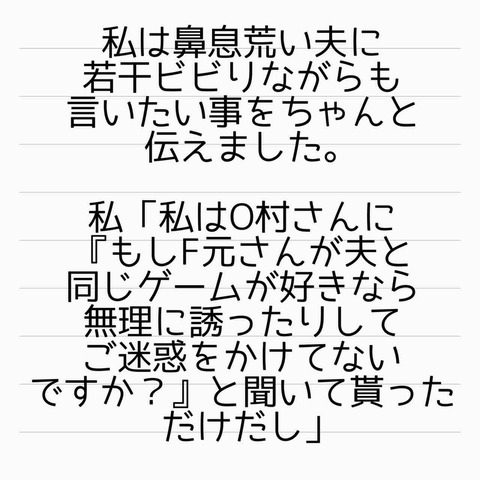 私は鼻息荒い夫に
若干ビビりながらも
言いたい事をちゃんと
伝えました。
私「私はO村さんに
『もしF元さんが夫と
同じゲームが好きなら
無理に誘ったりして
ご迷惑をかけてない
ですか？』と聞いて貰った
だけだし」